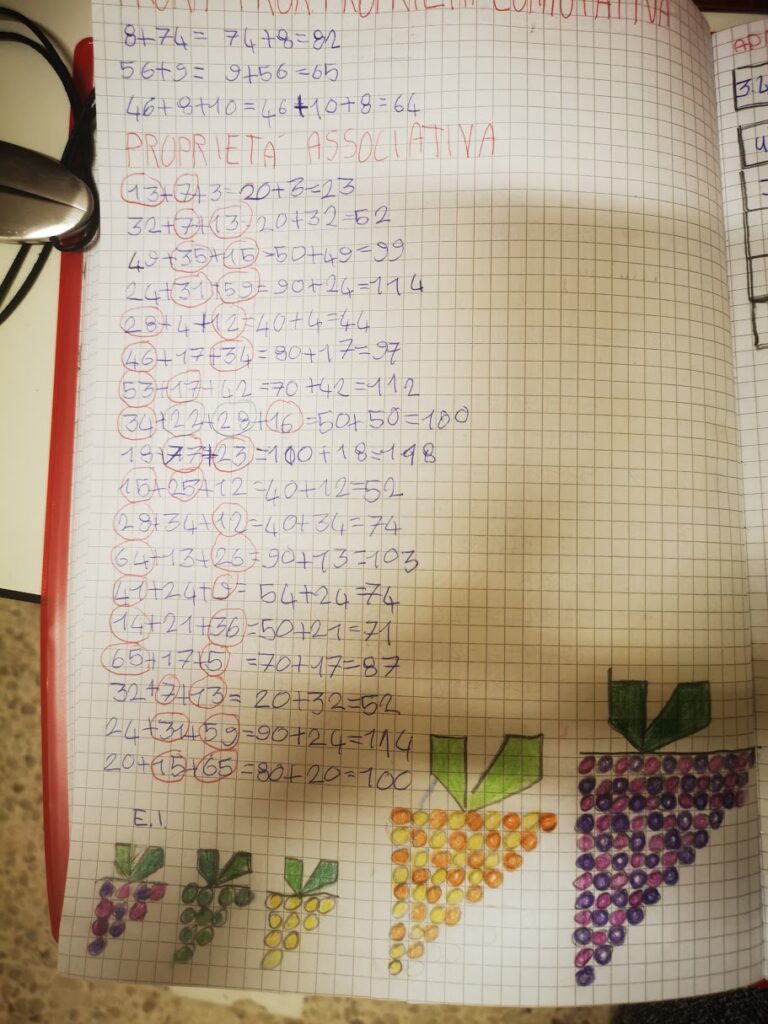 PROPRIETÀ COMMUTATIVA
8+74= 74+8=82
56+9= 9+56=65
46+8+10=46+10+8=64
PROPRIETÀ ASSOCIATIVA
13+7+3=20+3=23
32+7+13=20+32=52
49+35+15=50+49=99
24+31+59=90+24=114
28+4+12=40+4=44
46+17+34=80+17=97
53+17+42=70+42=112
34+22+28+16=50+50=100
18+77+23=100+18=118
15+25+12=40+12=52
28+34+12=40+34=74
64+13+26=90+13=103
41+24+9= 54+24=74
14+21+36=50+21=71
65+17+5 =70+17=87
32+7+13= 20+32=52
24+31+59=90+24=114
20+15+65=80+20=100
E.1.